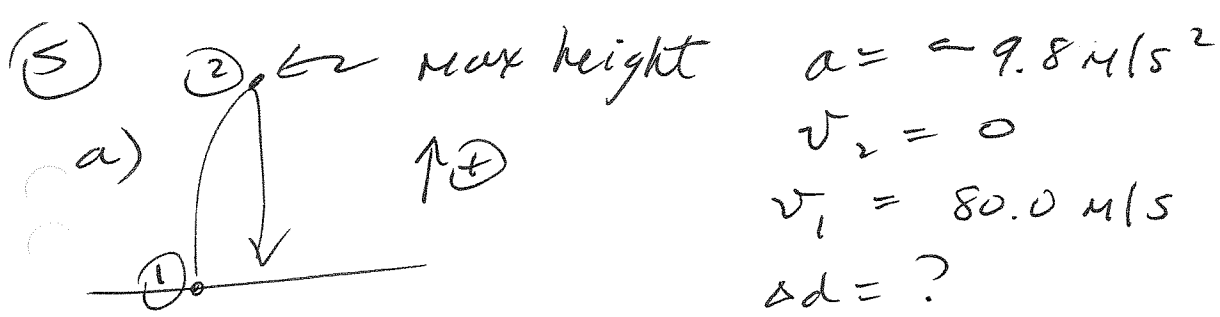 ⑤ ② ← max height
a = -9.8 m/s²
a) ↑⊕
v₂ = 0
v₁ = 80.0 m/s
①
Δd = ?